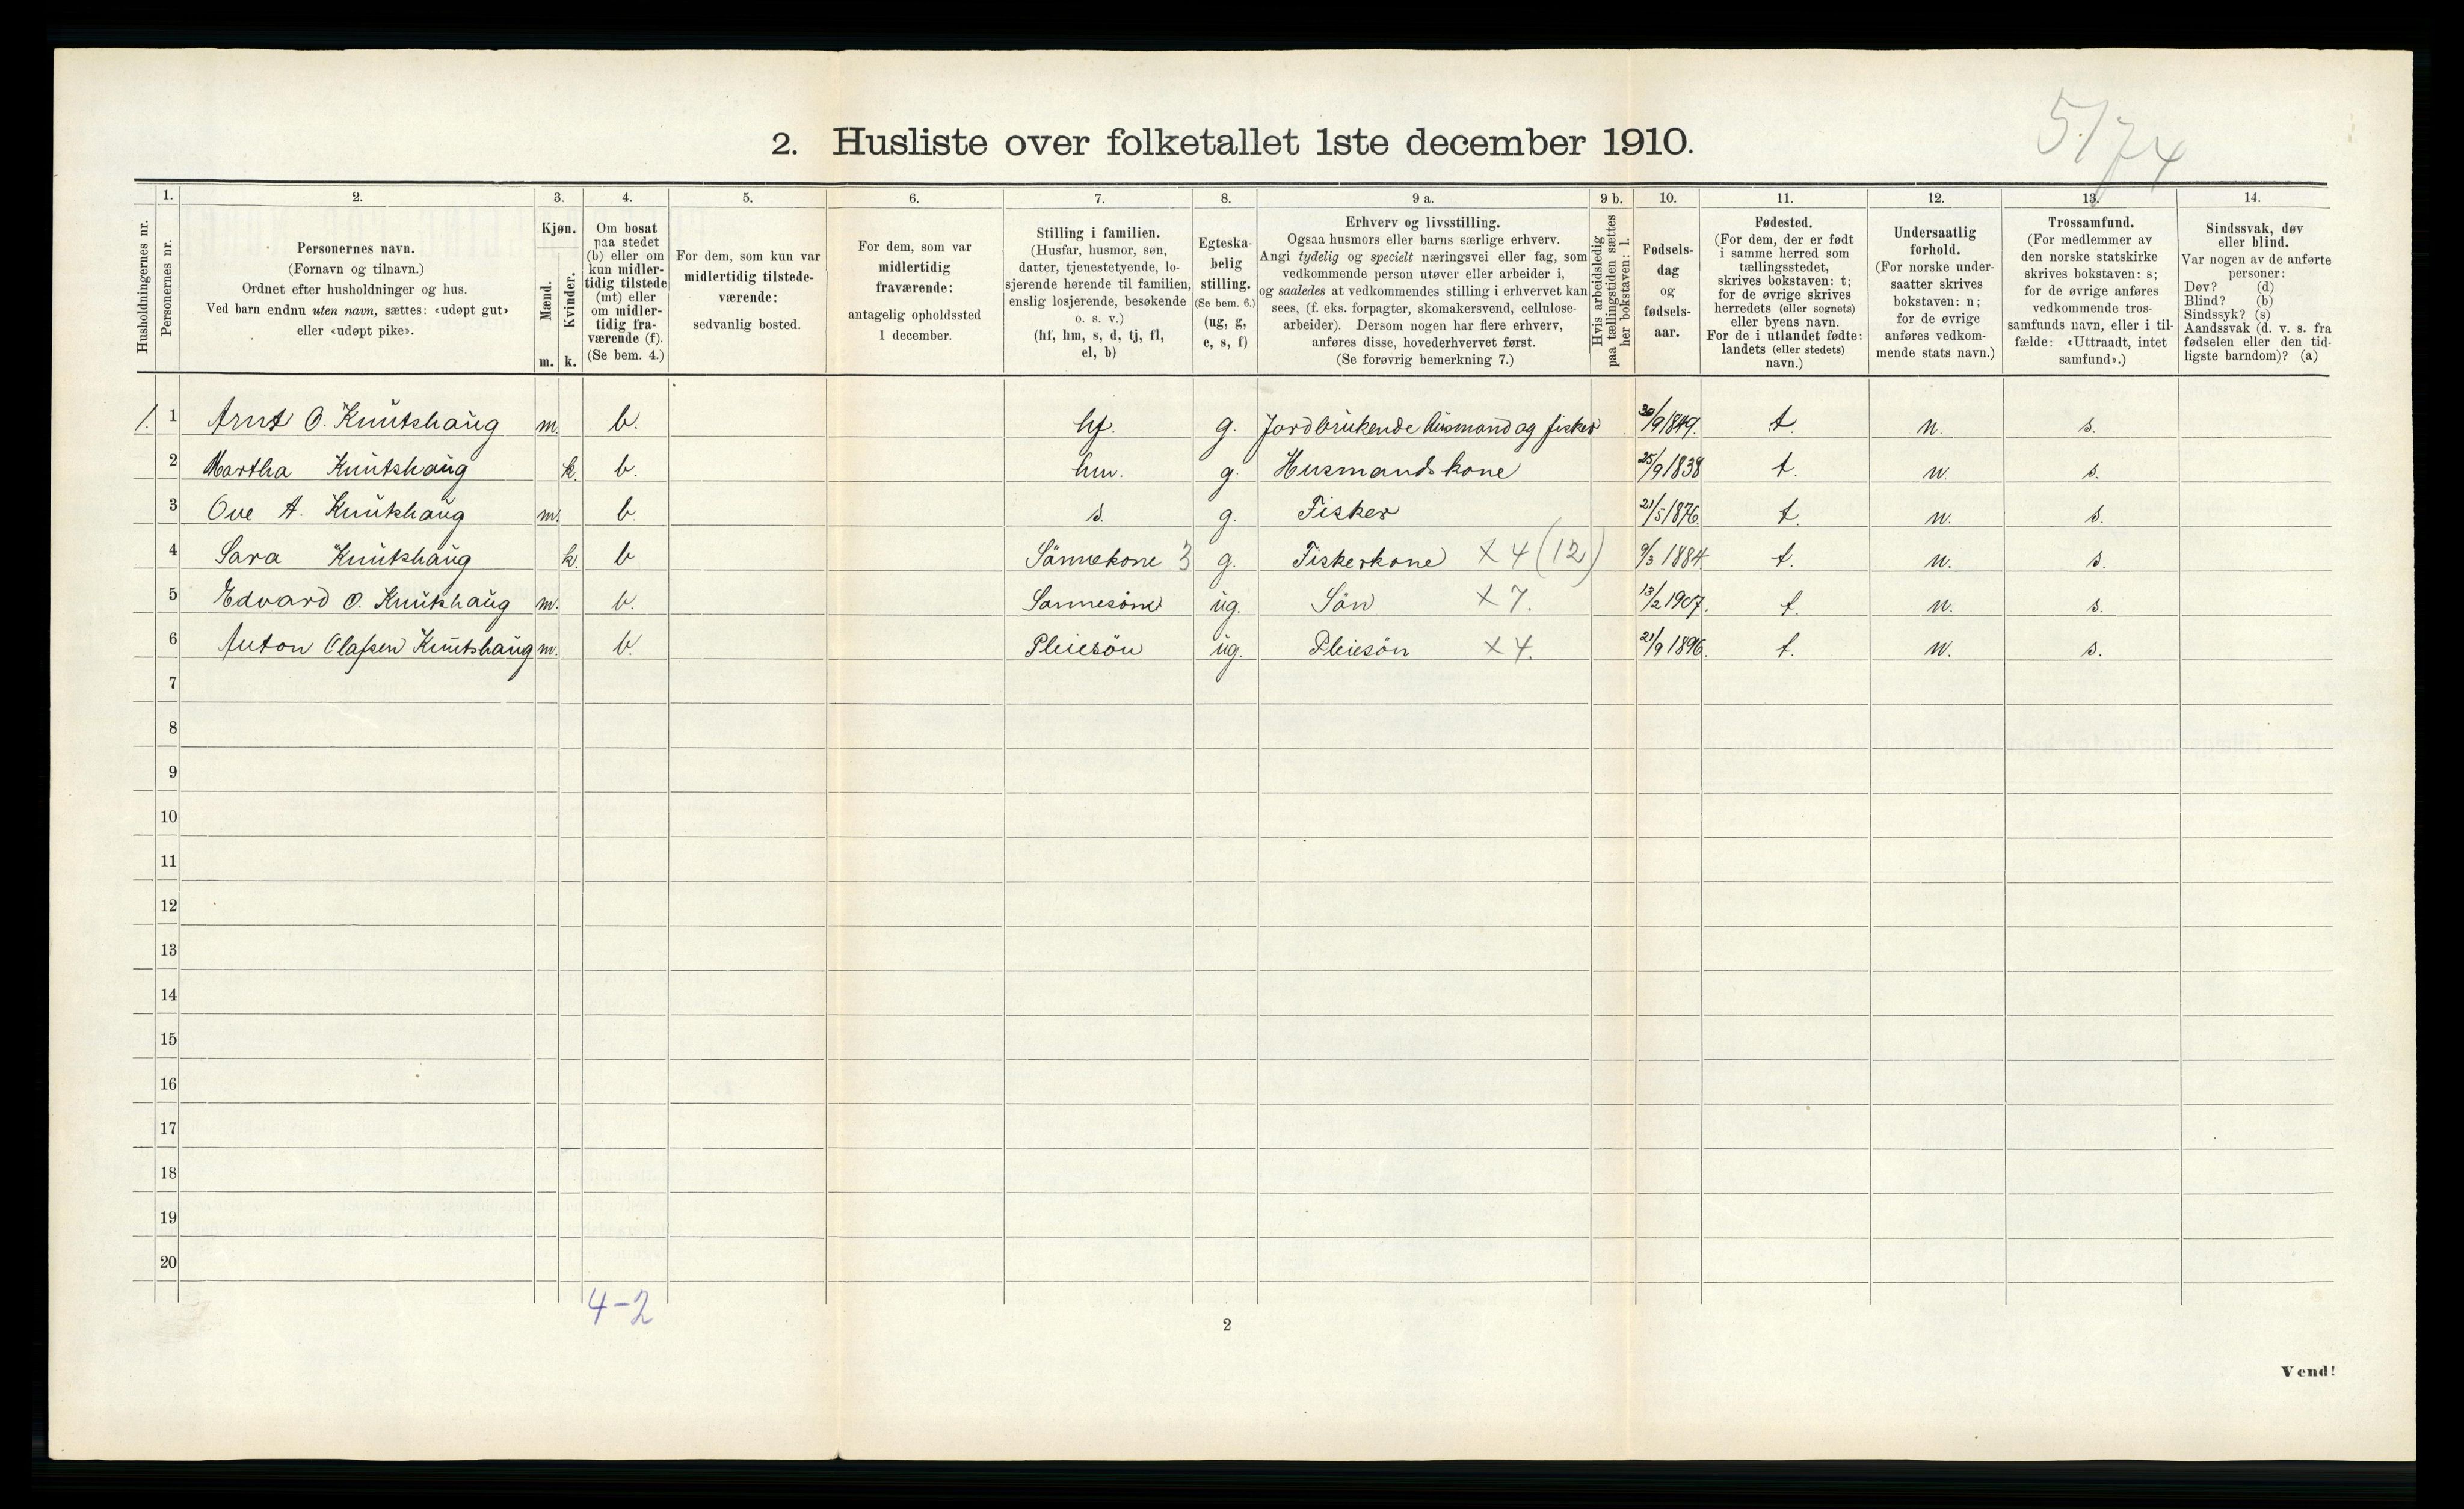 5/74
2. Husliste over folketallet 1ste december 1910.
1. 2. 3. 4. 5. 6. 7. 8. 9 a. 9 b. 10. 11. 12. 13. 14.
Husholdningernes nr.
Personernes nr.
Personernes navn.
(Fornavn og tilnavn.)
Ordnet efter husholdninger og hus.
Ved barn endnu uten navn, sættes: «udøpt gut»
eller «udøpt pike».
Kjøn.
Mænd.
Kvinder.
m. k.
Om bosat
paa stedet
(b) eller om
kun midler-
tidig tilstede
(mt) eller
om midler-
tidig fra-
værende (f).
(Se bem. 4.)
For dem, som kun var
midlertidig tilstede-
værende:
sedvanlig bosted.
For dem, som var
midlertidig
fraværende:
antagelig opholdssted
1 december.
Stilling i familien.
(Husfar, husmor, søn,
datter, tjenestetyende, lo-
sjerende hørende til familien,
enslig losjerende, besøkende
o. s. v.)
(hf, hm, s, d, tj, fl,
el, b)
Egteska-
belig
stilling.
(Se bem. 6.)
(ug, g,
e, s, f)
Erhverv og livsstilling.
Ogsaa husmors eller barns særlige erhverv.
Angi tydelig og specielt næringsvei eller fag, som
vedkommende person utøver eller arbeider i,
og saaledes at vedkommendes stilling i erhvervet kan
sees, (f. eks. forpagter, skomakersvend, cellulose-
arbeider). Dersom nogen har flere erhverv,
anføres disse, hovederhvervet først.
(Se forøvrig bemerkning 7.)
Hvis arbeidsledig
paa tællingstiden sættes
her bokstaven: l.
Fødsels-
dag
og
fødsels-
aar.
Fødested.
(For dem, der er født
i samme herred som
tællingsstedet,
skrives bokstaven: t;
for de øvrige skrives
herredets (eller sognets)
eller byens navn.
For de i utlandet fødte:
landets (eller stedets)
navn.)
Undersaatlig
forhold.
(For norske under-
saatter skrives
bokstaven: n;
for de øvrige
anføres vedkom-
mende stats navn.)
Trossamfund.
(For medlemmer av
den norske statskirke
skrives bokstaven: s;
for de øvrige anføres
vedkommende tros-
samfunds navn, eller i til-
fælde: «Uttraadt, intet
samfund».)
Sindssvak, døv
eller blind.
Var nogen av de anførte
personer:
Døv? (d)
Blind? (b)
Sindssyk? (s)
Aandssvak (d. v. s. fra
fødselen eller den tid-
ligste barndom)? (a)
1. 1 Arnt O. Knutshaug m. b. hf. g. Jordbrukende husmand og fisker 30/9 1849. t. n. s.
2 Martha Knutshaug k. b. hm. g. Husmandskone 25/9 1838 t. n. s.
3 Ove A. Knutshaug m. b. s. g. Fisker 21/5 1876. t. n. s.
4 Sara Knutshaug k. b Sönnekone 3 g. Fiskerkone x 4 (12) 9/3 1884 t. n. s.
5 Edvard O. Knutshaug m. b. Sønnesønn ug. Sön x 7. 13/2 1907. t. n. s.
6 Anton Olafsen Knutshaug m. b. Pleiesön ug. Pleiesön x 4. 21/9 1896. t. n. s.
7
8
9
10
11
12
13
14
15
16
17
18
19
20
4-2
2
Vend!